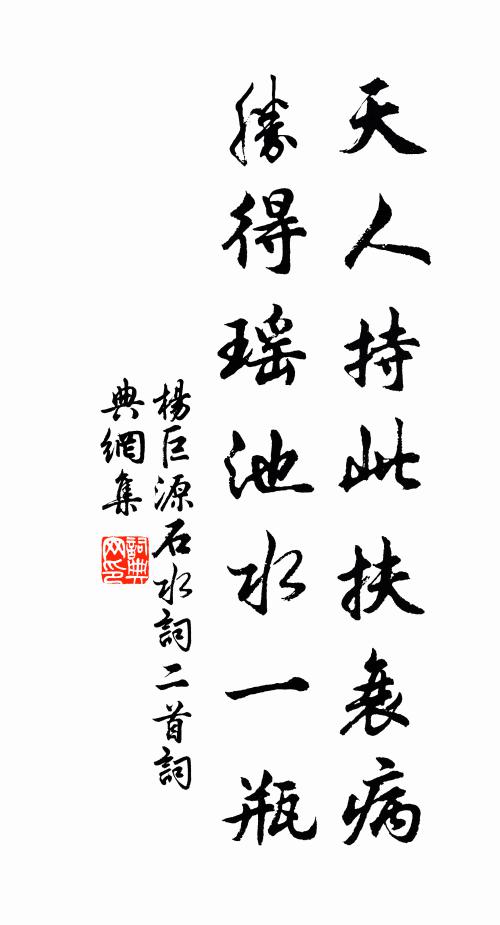 天人持此扶衰病
勝得瑶池水一瓶
楊巨源石水詞二首詞
典網集
詞典网印